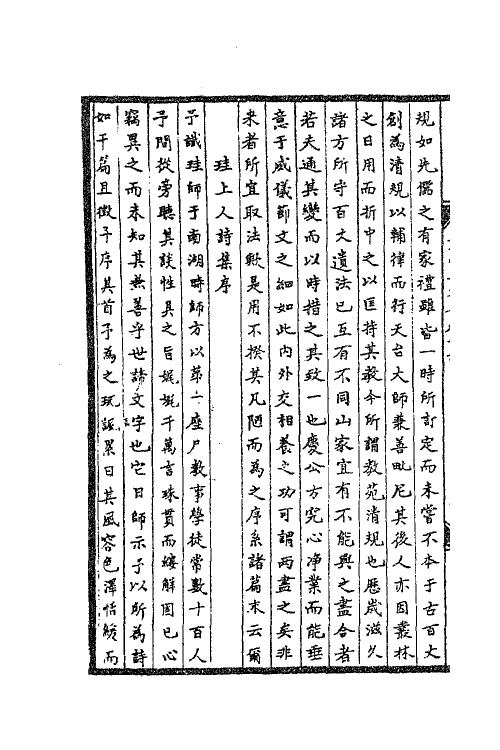 規如先儒之有家禮雖皆一時所訂定而未嘗不本于古百丈
創為清規以輔律而行天台大師兼善毗尼其後人亦因叢林
之日用而折中之以匡持其教今所謂教苑清規也歷歲滋久
諸方所守百丈遺法已互有不同山家宜有不能與之盡合者
若夫通其變而以時措之其致一也慶公方究心淨業而能垂
意于威儀節文之細如此內外交相養之功可謂兩盡之矣非
來者所宜取法歟是用不揆其凡陋而為之序系諸篇末云爾
珪上人詩集序
予識珪師于南湖時師方以第一座尸教事學徒常數十百人
予間從旁聽其談性具之旨娓娓千萬言珠貫而縷解固已心
竊異之而未知其兼善乎世諦文字也它日師示予以所為詩
如干篇且徵予序其首予為之玩誦累日其風容色澤恬緻而